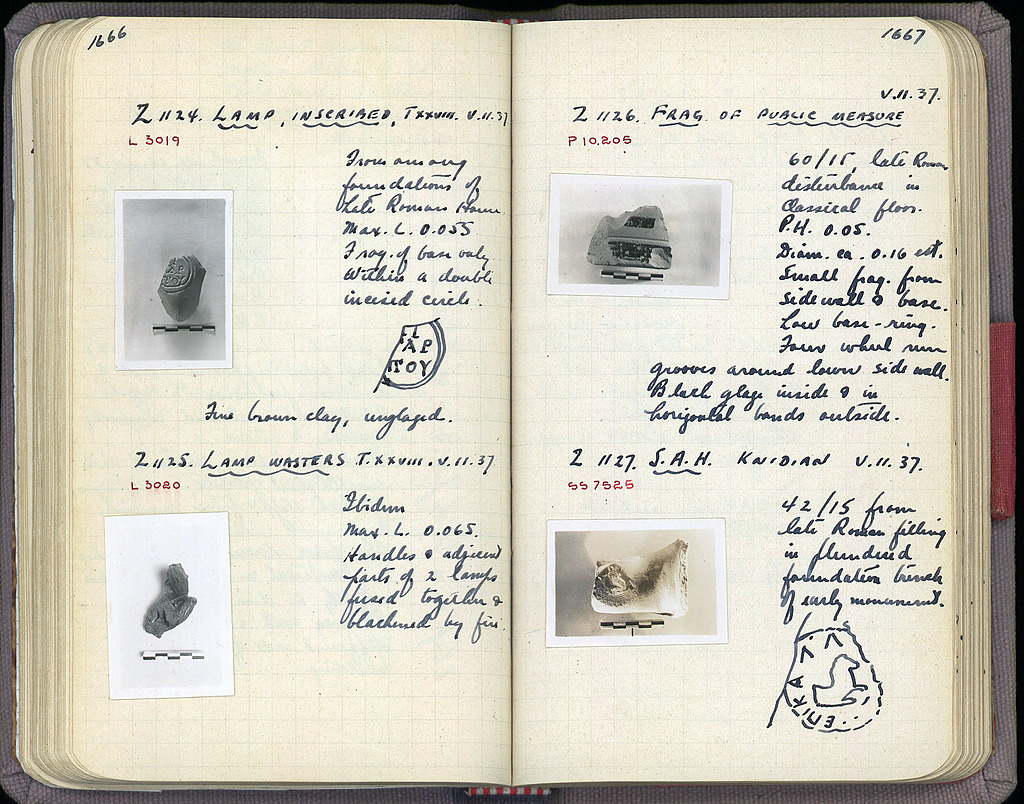 1666
Z 1124. LAMP, INSCRIBED, TXXVIII. V.11.37
L 3019
From among
foundations of
Late Roman House.
Max. L. 0.055
Frag. of base only
Within a double
incised circle.
ΑΡ
ΤΟΥ
Fine brown clay, unglazed.
Z 1125. LAMP WASTERS T.XXVIII. V.11.37
L 3020
Ibidem
Max. L. 0.065.
Handles & adjacent
parts of 2 lamps
fused together &
blackened by fire.
1667
V.11.37.
Z 1126. FRAG. OF PUBLIC MEASURE
P 10.205
60/15, late Roman
disturbance in
Classical floor.
P.H. 0.05.
Diam. ca. 0.16 est.
Small frag. from
side wall & base.
Low base-ring.
Four wheel run
grooves around lower side wall.
Black glaze inside & in
horizontal bands outside.
Z 1127. S.A.H. KNIDIAN V.11.37.
SS 7525
42/15 from
late Roman filling
in plundered
foundation trench
of early monument.
ΕΠΙΚΑΛΛ